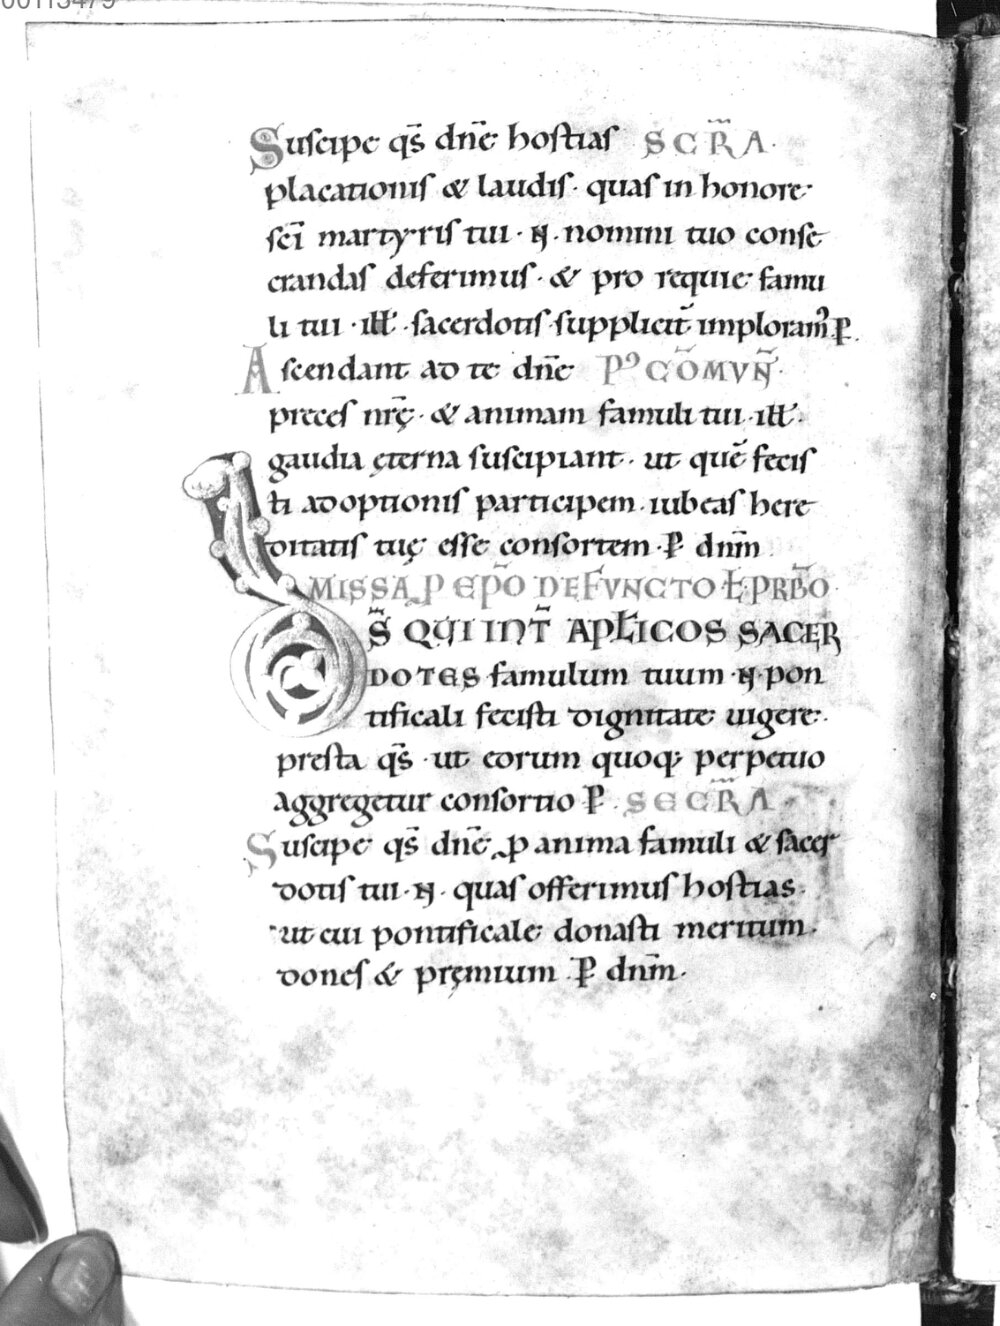 Suscipe qs̄ dnē hostias SCR̄A.
placationis & laudis. quas in honore
sc̄i martyris tui. N. nomini tuo conse
crandas deferimus. & pro requie famu
li tui. ill̄. sacerdotis supplicit̄ imploram̄ꝰ. P.
Ascendant ad te dnē Pꝰ CŌMVN̄.
preces nr̄ę. & animam famuli tui. ill̄.
gaudia ęterna suscipiant. ut quē fecis
ti adoptionis participem. iubeas here
ditatis tuę esse consortem. P dnm̄
MISSA P EPŌ DEFVNCTO Ł PRB̄O.
DS̄ QUI INT̄ APŁICOS SACER
DOTES famulum tuum. N. pon
tificali fecisti dignitate uigere.
presta qs̄. ut eorum quoq; perpetuo
aggregetur consortio P. SECR̄A.
Suscipe qs̄ dnē. ꝓ anima famuli & sacer
dotis tui. N. quas offerimus hostias.
ut cui pontificale donasti meritum.
dones & pręmium. P dnm̄.